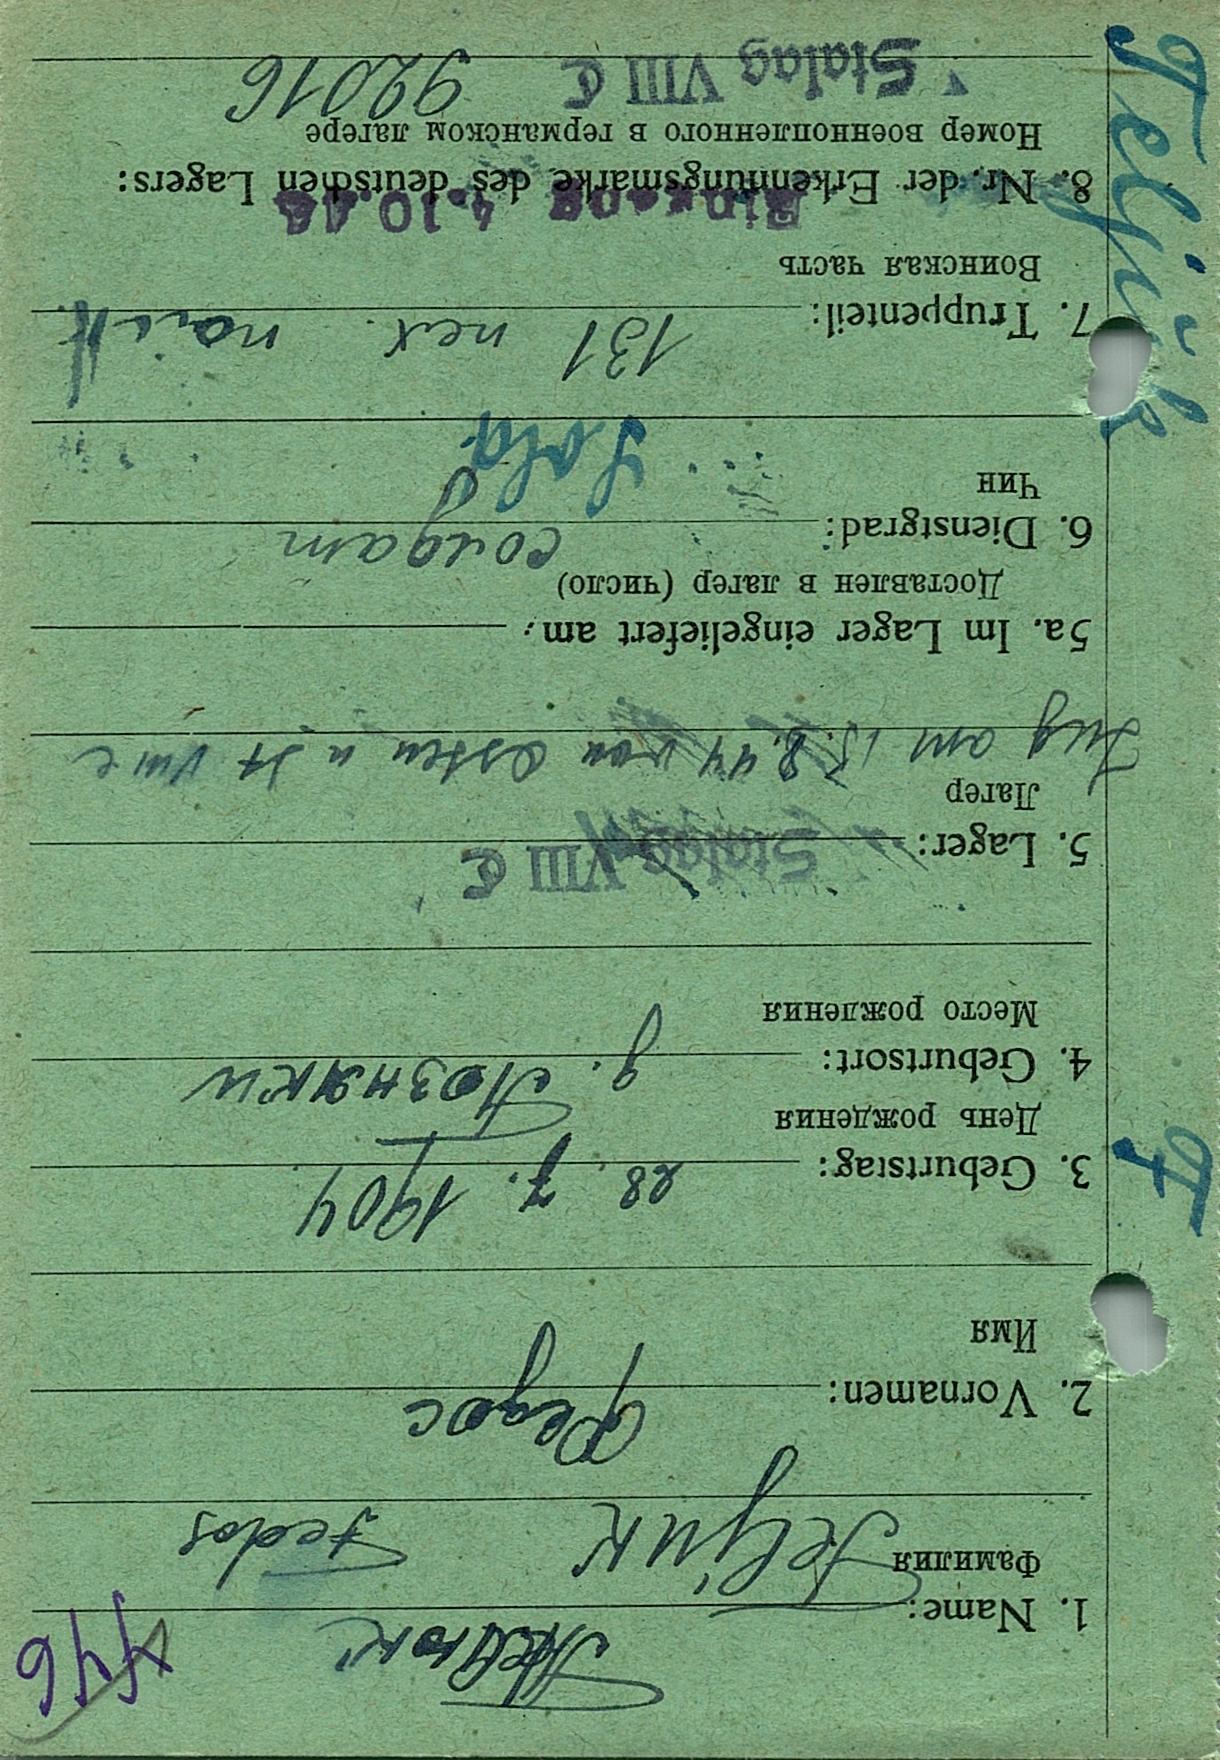 446
Телюк
1. Name:
Фамилия
Teljuk Fedos
2. Vornamen: Федос
Имя
3. Geburtstag: 28. 7. 1904
День рождения
4. Geburtsort: д. Позняки
Место рождения
5. Lager: Stalag VIII C
Лагер
Zug am 15.8.44 von
5a. Im Lager eingeliefert am:
Доставлен в лагер (число)
6. Dienstgrad: солдат
Чин
Sold
7. Truppenteil: 131 пех. полк
Воинская часть
Eingang 4.10.44
8. Nr. der Erkennungsmarke des deutschen Lagers:
Номер военнопленного в германском лагере
Stalag VIII C 92016
T
Teljuk